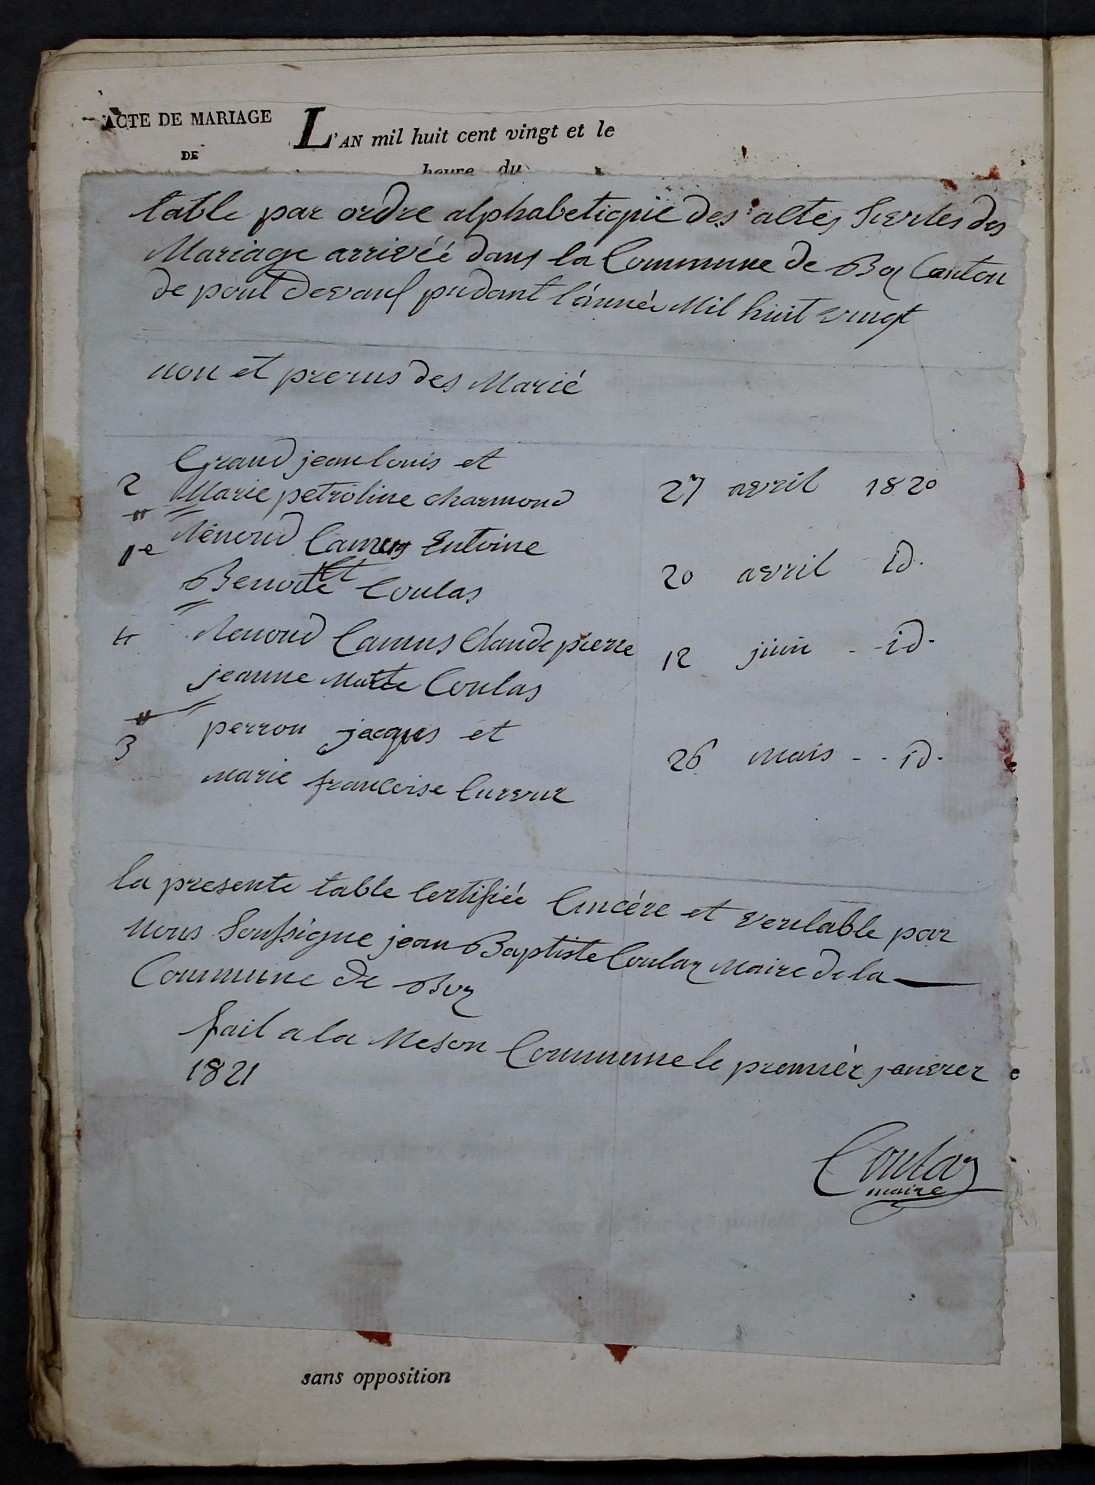 ACTE DE MARIAGE
DE
L'AN mil huit cent vingt et le
heure du
table par ordre alphabetique des actes des
Mariage arrivéé dans la Commune de Boz Canton
de pont devaux pudant l'année Mil huit vingt
non et prenus des Marié
Grand jean louis et
2 Marie petroline charmond 27 avril 1820
1e Renoud Camus Entoine
et
Benoite Coulas 20 avril id.
4 Renoud Camus Claude pierre 12 juin - id.
jeanne Coulas
perron jacques et
3 26 mais - - id.
marie francoise
la presente table certifiée Cincére et veritable par
Nous Soussigne jean Baptiste Coulaz Maire de la
Commune de Boz
fait a la Meson Commune le premièr janvier
1821
Coulaz
maire
sans opposition